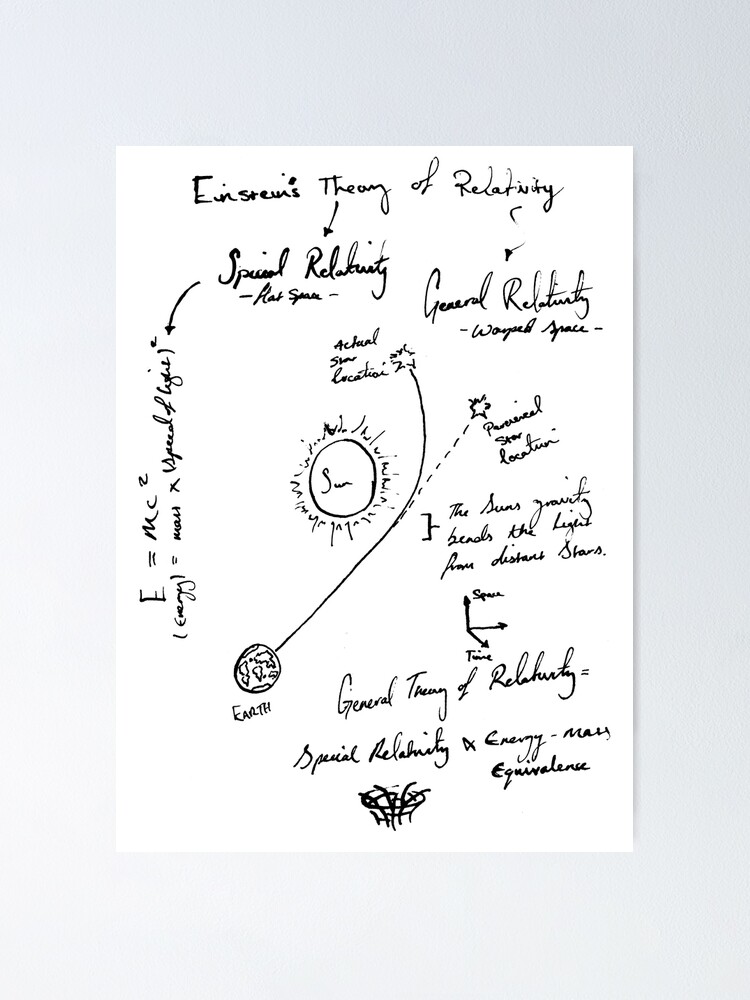 Einstein's Theory of Relativity
Special Relativity
- flat space -
General Relativity
- Warped Space -
E = mc²
(Energy) = mass x (speed of light)²
Actual
Star
location
Perceived
Star
location
Sun
The Suns gravity
bends the light
from distant Stars.
Space
Time
EARTH
General Theory of Relativity =
Special Relativity & Energy - Mass
Equivalence